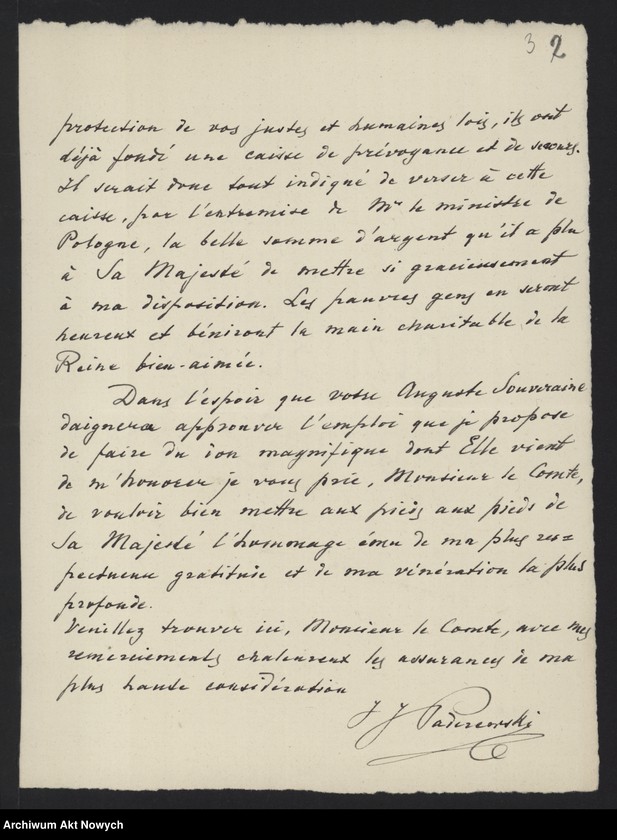 3 2
protection de vos justes et humaines lois, ils ont
déjà fondé une caisse de prévoyance et de secours.
Il serait donc tout indiqué de verser à cette
caisse, par l'entremise de Mr le ministre de
Pologne, la belle somme d'argent qu'il a plu
à Sa Majesté de mettre si gracieusement
à ma disposition. Les pauvres gens en seront
heureux et béniront la main charitable de la
Reine bien-aimée.
Dans l'espoir que votre Auguste Souveraine
daignera approuver l'emploi que je propose
de faire du don magnifique dont Elle vient
de m'honorer je vous prie, Monsieur le Comte,
de vouloir bien mettre aux pieds aux pieds de
Sa Majesté l'hommage ému de ma plus res=
pectueuse gratitude et de ma vénération la plus
profonde.
Veuillez trouver ici, Monsieur le Comte, avec mes
remerciements chaleureux les assurances de ma
plus haute considération
I J Paderewski
Archiwum Akt Nowych